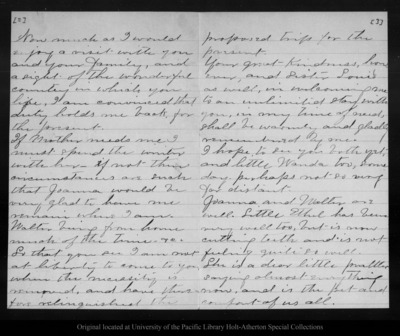 [2]
Now much as I would
enjoy a visit with you
and your family, and
a sight of the wonderful
country in which you
live, I am convinced that
duty holds me back, for
the present.
If Mother needs me I
must spend the winter
with her. If not then
circumstances are such
that Joanna would be
very glad to have me
remain where I am.
Walter being from home
much of the time. &c.
So that you see I am not
at liberty to come to you
when the necessity is
removed, and have
for relinquished the
[3]
proposed trip for the
present.
Your great kindness, how
ever, and Sister Louie's
as well, in welcoming me
to an unlimited stay with
you, in my time of need,
shall be warmly, and gladly
remembered by me.
I hope to see you both yet,
and little Wanda too, some
day, perhaps not so very
far distant.
Joanna and Walter are
well. Little Ethel has been
very well too, but is now
cutting teeth and is not
feeling quite so well.
She is a dear little prattler
saying almost everything
now, and is the pet and
comfort of us all.
Original located at University of the Pacific Library Holt-Atherton Special Collections